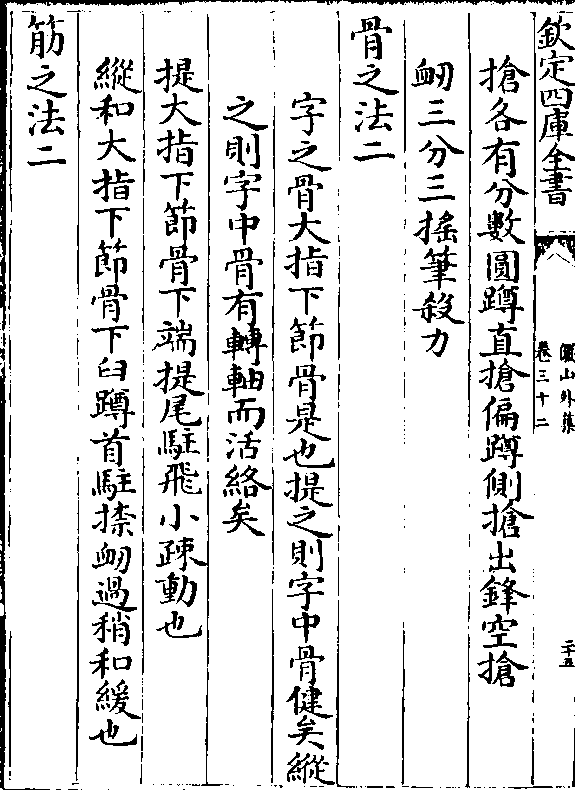 欽定四庫全書
儼山外集
卷三十二
二十五
搶各有分數圓蹲直搶偏蹲側搶出鋒空搶
衄三分三搖筆殺力
骨之法二
字之骨大指下節骨是也提之則字中骨健矣縱
之則字中骨有轉軸而活絡矣
提大指下節骨下端提尾駐飛小疎動也
縱和大指下節骨下臼蹲首駐捺衄過稍和緩也
筋之法二